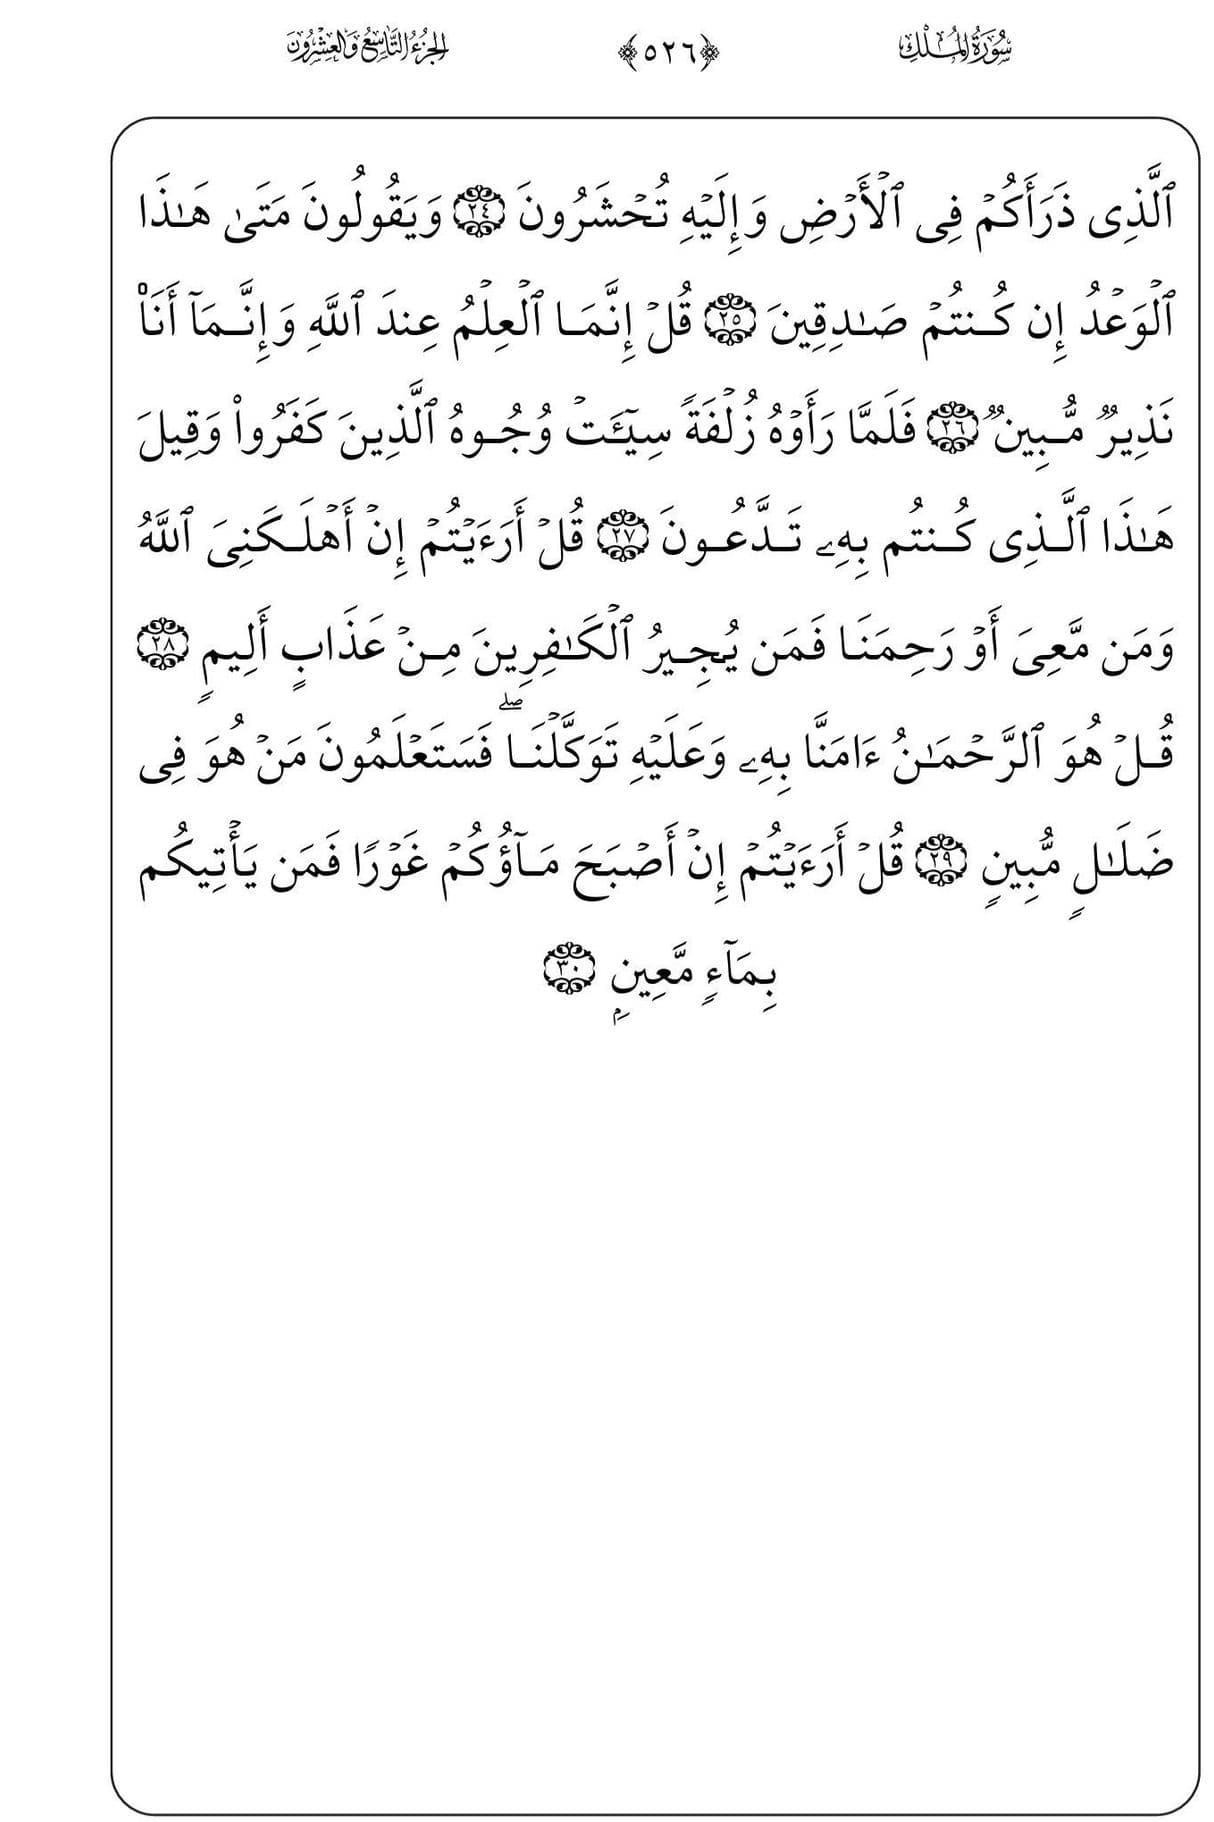 سُورَةُ المُلْكِ ﴿٥٢٦﴾ الجُزْءُ التَّاسِعُ وَالعِشْرُونَ
ٱلَّذِى ذَرَأَكُمۡ فِى ٱلۡأَرۡضِ وَإِلَيۡهِ تُحۡشَرُونَ ٢٤ وَيَقُولُونَ مَتَىٰ هَـٰذَا
ٱلۡوَعۡدُ إِن كُـنتُمۡ صَـٰدِقِينَ ٢٥ قُلۡ إِنَّمَـا ٱلۡعِلۡمُ عِندَ ٱللَّهِ وَإِنَّـمَآ أَنَا۠
نَذِيرٌ مُّـبِينٌ ٢٦ فَلَمَّا رَأَوۡهُ زُلۡفَةً سِيٓـَٔتۡ وُجُـوهُ ٱلَّذِينَ كَفَرُوا۟ وَقِيلَ
هَـٰذَا ٱلَّـذِى كُـنتُم بِهِۦ تَـدَّعُـونَ ٢٧ قُلۡ أَرَءَيۡتُمۡ إِنۡ أَهۡلَـكَنِىَ ٱللَّهُ
وَمَن مَّعِىَ أَوۡ رَحِمَنَـا فَمَن يُجِـيرُ ٱلۡكَـٰفِرِينَ مِـنۡ عَذَابٍ أَلِيمٍ ٢٨
قُـلۡ هُوَ ٱلرَّحۡمَـٰنُ ءَامَنَّا بِهِۦ وَعَلَيۡهِ تَوَكَّلۡنَـاۖ فَسَتَعۡلَمُونَ مَنۡ هُوَ فِى
ضَلَـٰلٍ مُّبِينٍ ٢٩ قُلۡ أَرَءَيۡتُمۡ إِنۡ أَصۡبَحَ مَـآؤُكُمۡ غَوۡرًا فَمَن يَأۡتِيكُم
بِمَآءٍ مَّعِينِۭ ٣٠